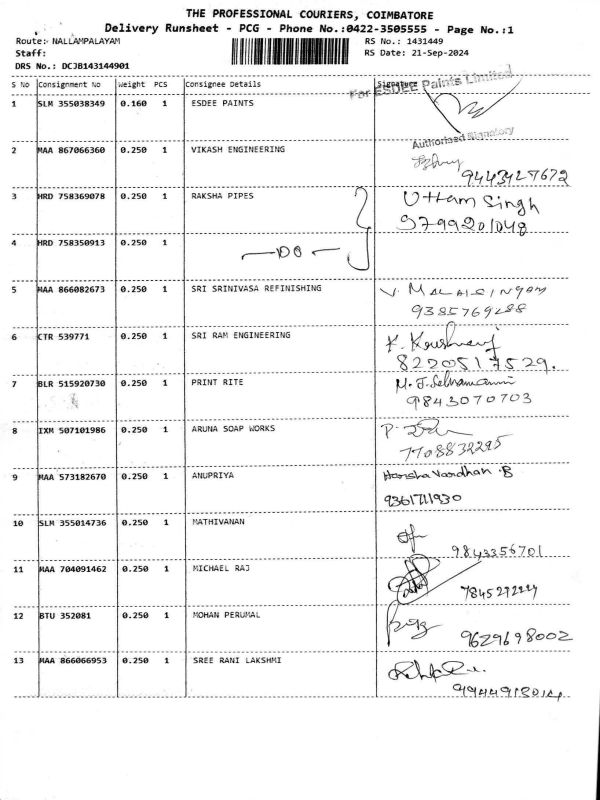 THE PROFESSIONAL COURIERS, COIMBATORE
Delivery Runsheet - PCG - Phone No.:0422-3505555 - Page No.:1
Route:- NALLAMPALAYAM RS No.: 1431449
Staff: RS Date: 21-Sep-2024
DRS No.: DCJB143144901
S No Consignment No Weight PCS Consignee Details Signature
For ESDEE Paints Limited
1 SLM 355038349 0.160 1 ESDEE PAINTS
Authorised Signatory
2 MAA 867066360 0.250 1 VIKASH ENGINEERING
9443427672
3 HRD 758369078 0.250 1 RAKSHA PIPES Uttam Singh
9799201048
4 HRD 758350913 0.250 1
—DO—
5 MAA 866082673 0.250 1 SRI SRINIVASA REFINISHING
9385769288
6 CTR 539771 0.250 1 SRI RAM ENGINEERING
8220517529.
7 BLR 515920730 0.250 1 PRINT RITE
9843070703
8 IXM 507101986 0.250 1 ARUNA SOAP WORKS
7708832295
9 MAA 573182670 0.250 1 ANUPRIYA Harsha Vardhan.B
9361711930
10 SLM 355014736 0.250 1 MATHIVANAN
9843356701
11 MAA 704091462 0.250 1 MICHAEL RAJ
12 BTU 352081 0.250 1 MOHAN PERUMAL
9629698002
13 MAA 866066953 0.250 1 SREE RANI LAKSHMI